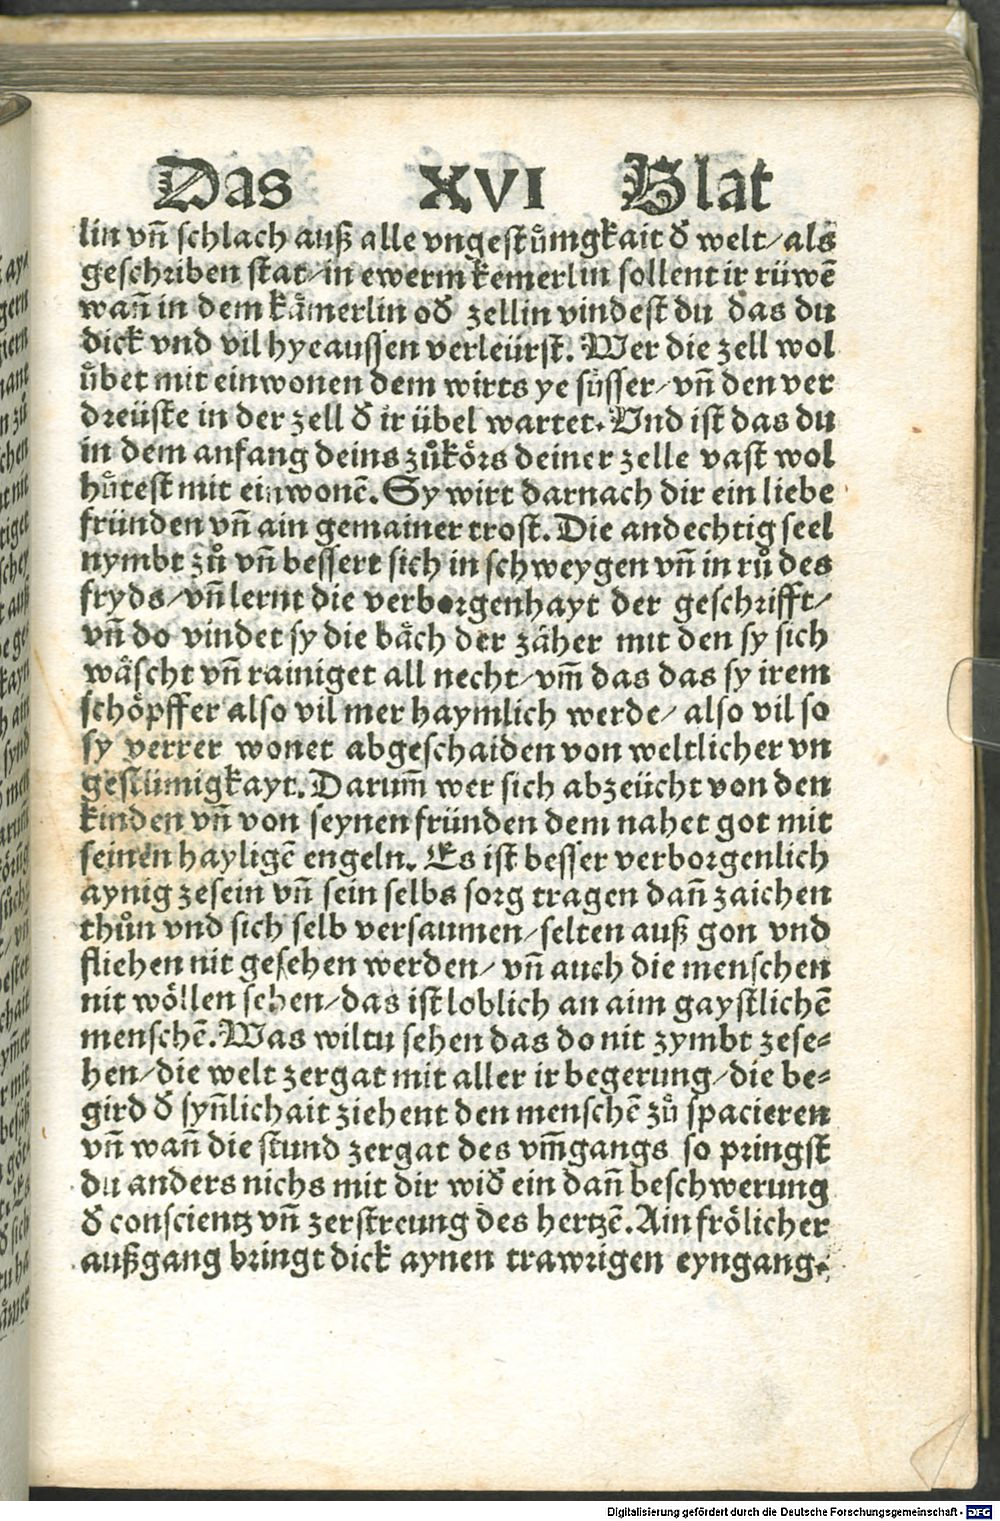 Das XVI Blat
lin vñ schlach auß alle vngestuͤmgkait ð welt/als
geschriben stat/in ewerm kemerlin sollent ir rüwē
wañ in dem kaͤmerlin oð zellin vindest du das du
dick vnd vil hyeaussen verleürst. Wer die zell wol
uͤbet mit einwonen dem wirts ye suͤsser/vñ den ver
dreüste in der zell ð ir übel wartet. Vnd ist das du
in dem anfang deins zuͦkoͤrs deiner zelle vast wol
huͤtest mit einwonē. Sy wirt darnach dir ein liebe
fründen vñ ain gemainer trost. Die andechtig seel
nymbt zuͦ vñ bessert sich in schweygen vñ in ruͦ des
fryds/vñ lernt die verborgenhayt der geschrifft/
vñ do vindet sy die baͤch der zaͤher mit den sy sich
waͤscht vñ rainiget all necht/vm̄ das das sy irem
schoͤpffer also vil mer haymlich werde/ also vil so
sy verrer wonet abgeschaiden von weltlicher vn
gestümigkayt. Darum̄ wer sich abzeücht von den
kinden vñ von seynen fründen dem nahet got mit
seinen hayligē engeln. Es ist besser verborgenlich
aynig zesein vñ sein selbs sorg tragen dañ zaichen
thuͦn vnd sich selb versaumen/selten auß gon vnd
fliehen nit gesehen werden/ vñ auch die menschen
nit woͤllen sehen/das ist loblich an aim gaystlichē
menschē. Was wiltu sehen das do nit zymbt zese-
hen/die welt zergat mit aller ir begerung/die be-
gird ð syñlichait ziehent den menschē zuͦ spacieren
vñ wañ die stund zergat des vm̄gangs so pringst
du anders nichs mit dir wið ein dañ beschwerung
ð conscientz vñ zerstreung des hertzē. Ain froͤlicher
außgang bringt dick aynen trawrigen eyngang.
Digitalisierung gefördert durch die Deutsche Forschungsgemeinschaft - DFG